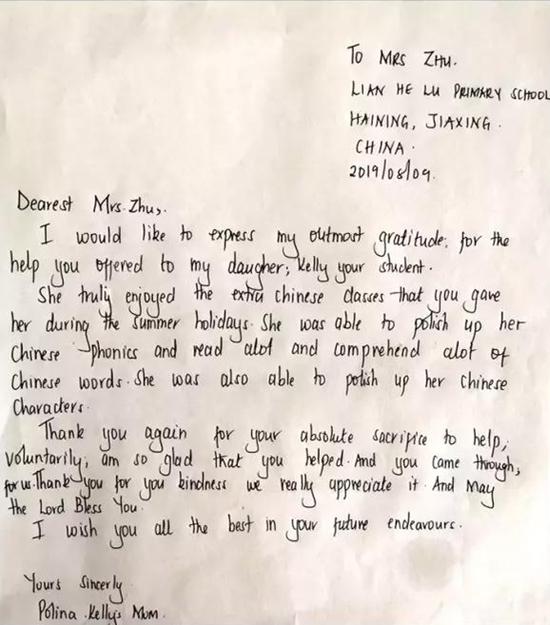 To MRS ZHU.
LIAN HE LU PRIMARY SCHOOL
HAINING, JIAXING.
CHINA.
2019/08/09.
Dearest Mrs. Zhu,.
I would like to express my outmost gratitude; for the
help you offered to my daugher; Kelly your student.
She truly enjoyed the extra chinese classes that you gave
her during the summer holidays. She was able to polish up her
Chinese phonics and read alot and comprehend alot of
Chinese words. She was also able to polish up her Chinese
Characters.
Thank you again for your absolute sacrifice to help;
voluntarily; am so glad that you helped. And you came through;
for us. Thank you for you kindness we really appreciate it. And May
the Lord Bless You.
I wish you all the best in your future endeavours.
Yours Sincerly
Polina. Kelly's Mum.